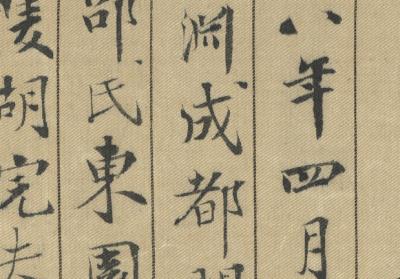 八年四月
淵成都
邵氏東園
胡完夫